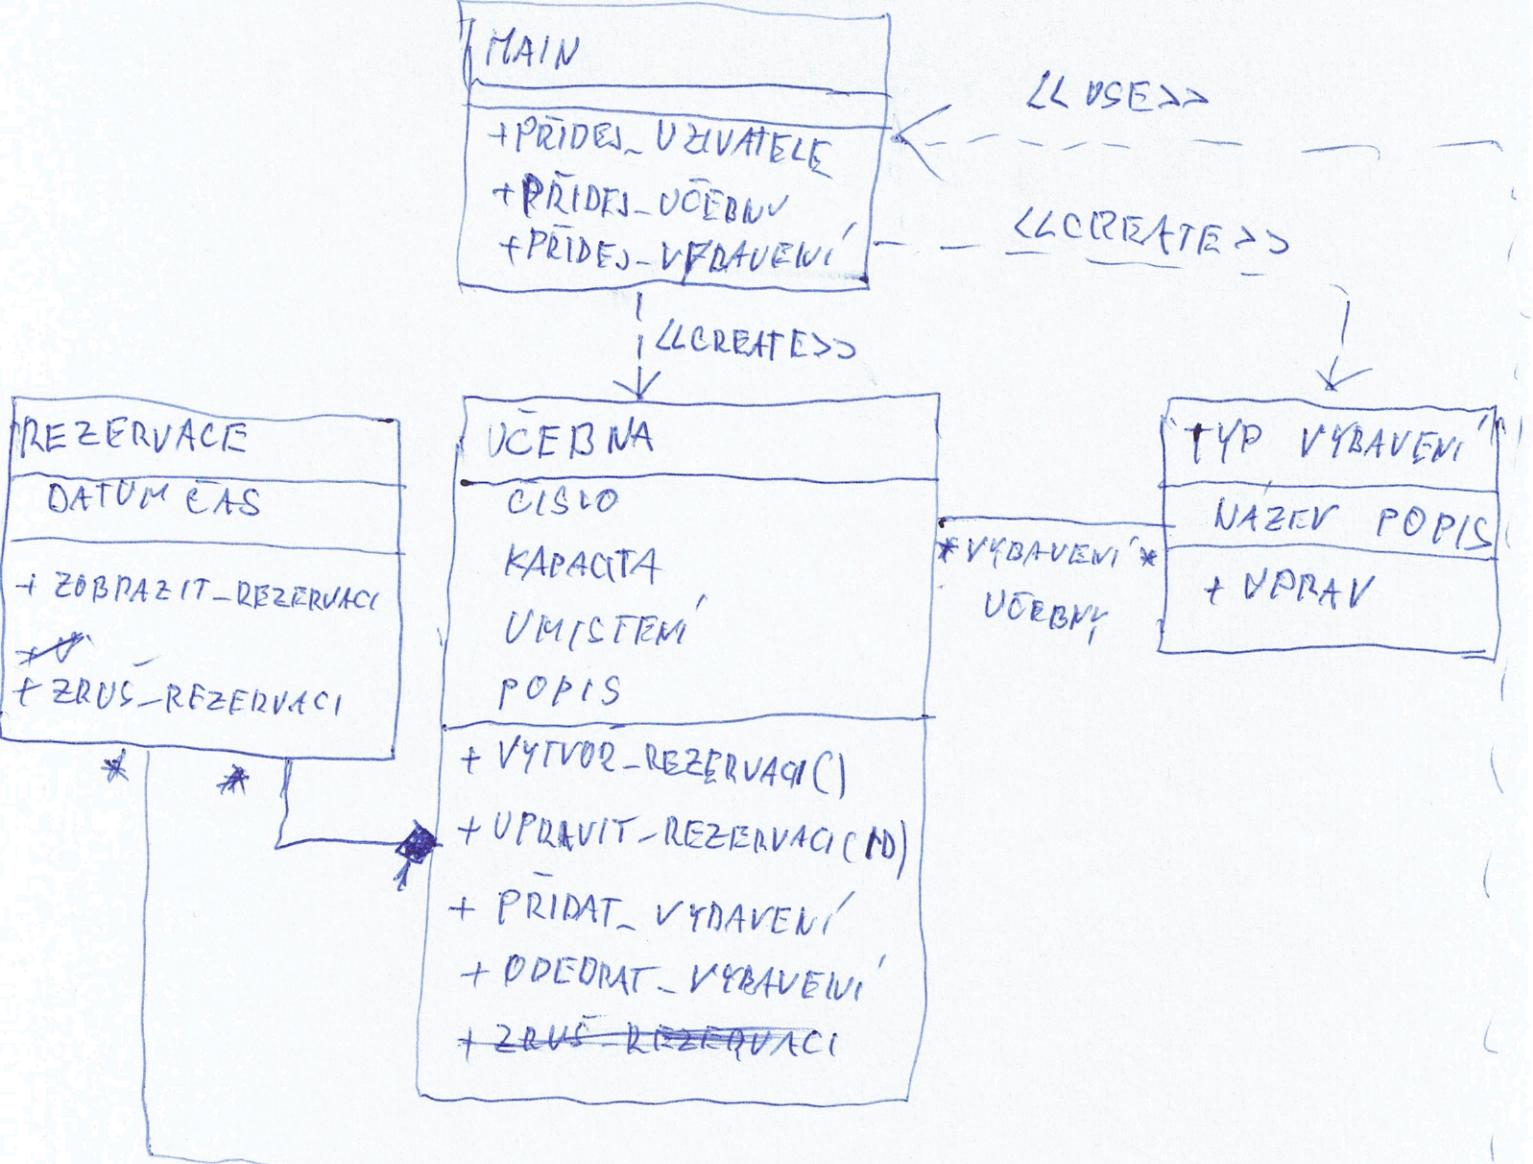 MAIN
+PŘIDEJ_UZIVATELE
+PŘIDEJ_UČEBNU
+PŘIDEJ_VYBAVENÍ
<<USE>>
<<CREATE>>
<<CREATE>>
REZERVACE
DATUM ČAS
+ ZOBRAZIT_REZERVACI
+ ZRUŠ_REZERVACI
*
*
UČEBNA
ČISLO
KAPACITA
UMISTENÍ
POPIS
+ VYTVOŘ_REZERVACI()
+ UPRAVIT_REZERVACI(ID)
+ PŘIDAT_VYBAVENÍ
+ ODEBRAT_VYBAVENÍ
+ ZRUŠ_REZERVACI
1
* VYBAVENÍ *
UČEBNY
TYP VYBAVENÍ
NÁZEV POPIS
+ UPRAV